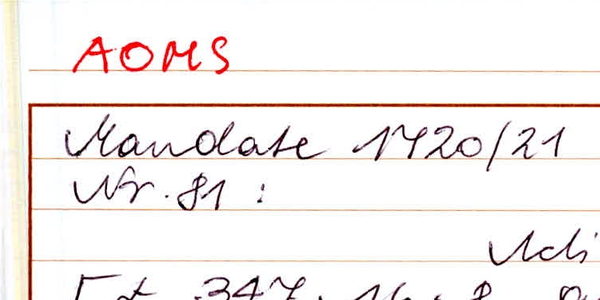 AOMS
Mandate 1720/21
Nr. 81:
347.